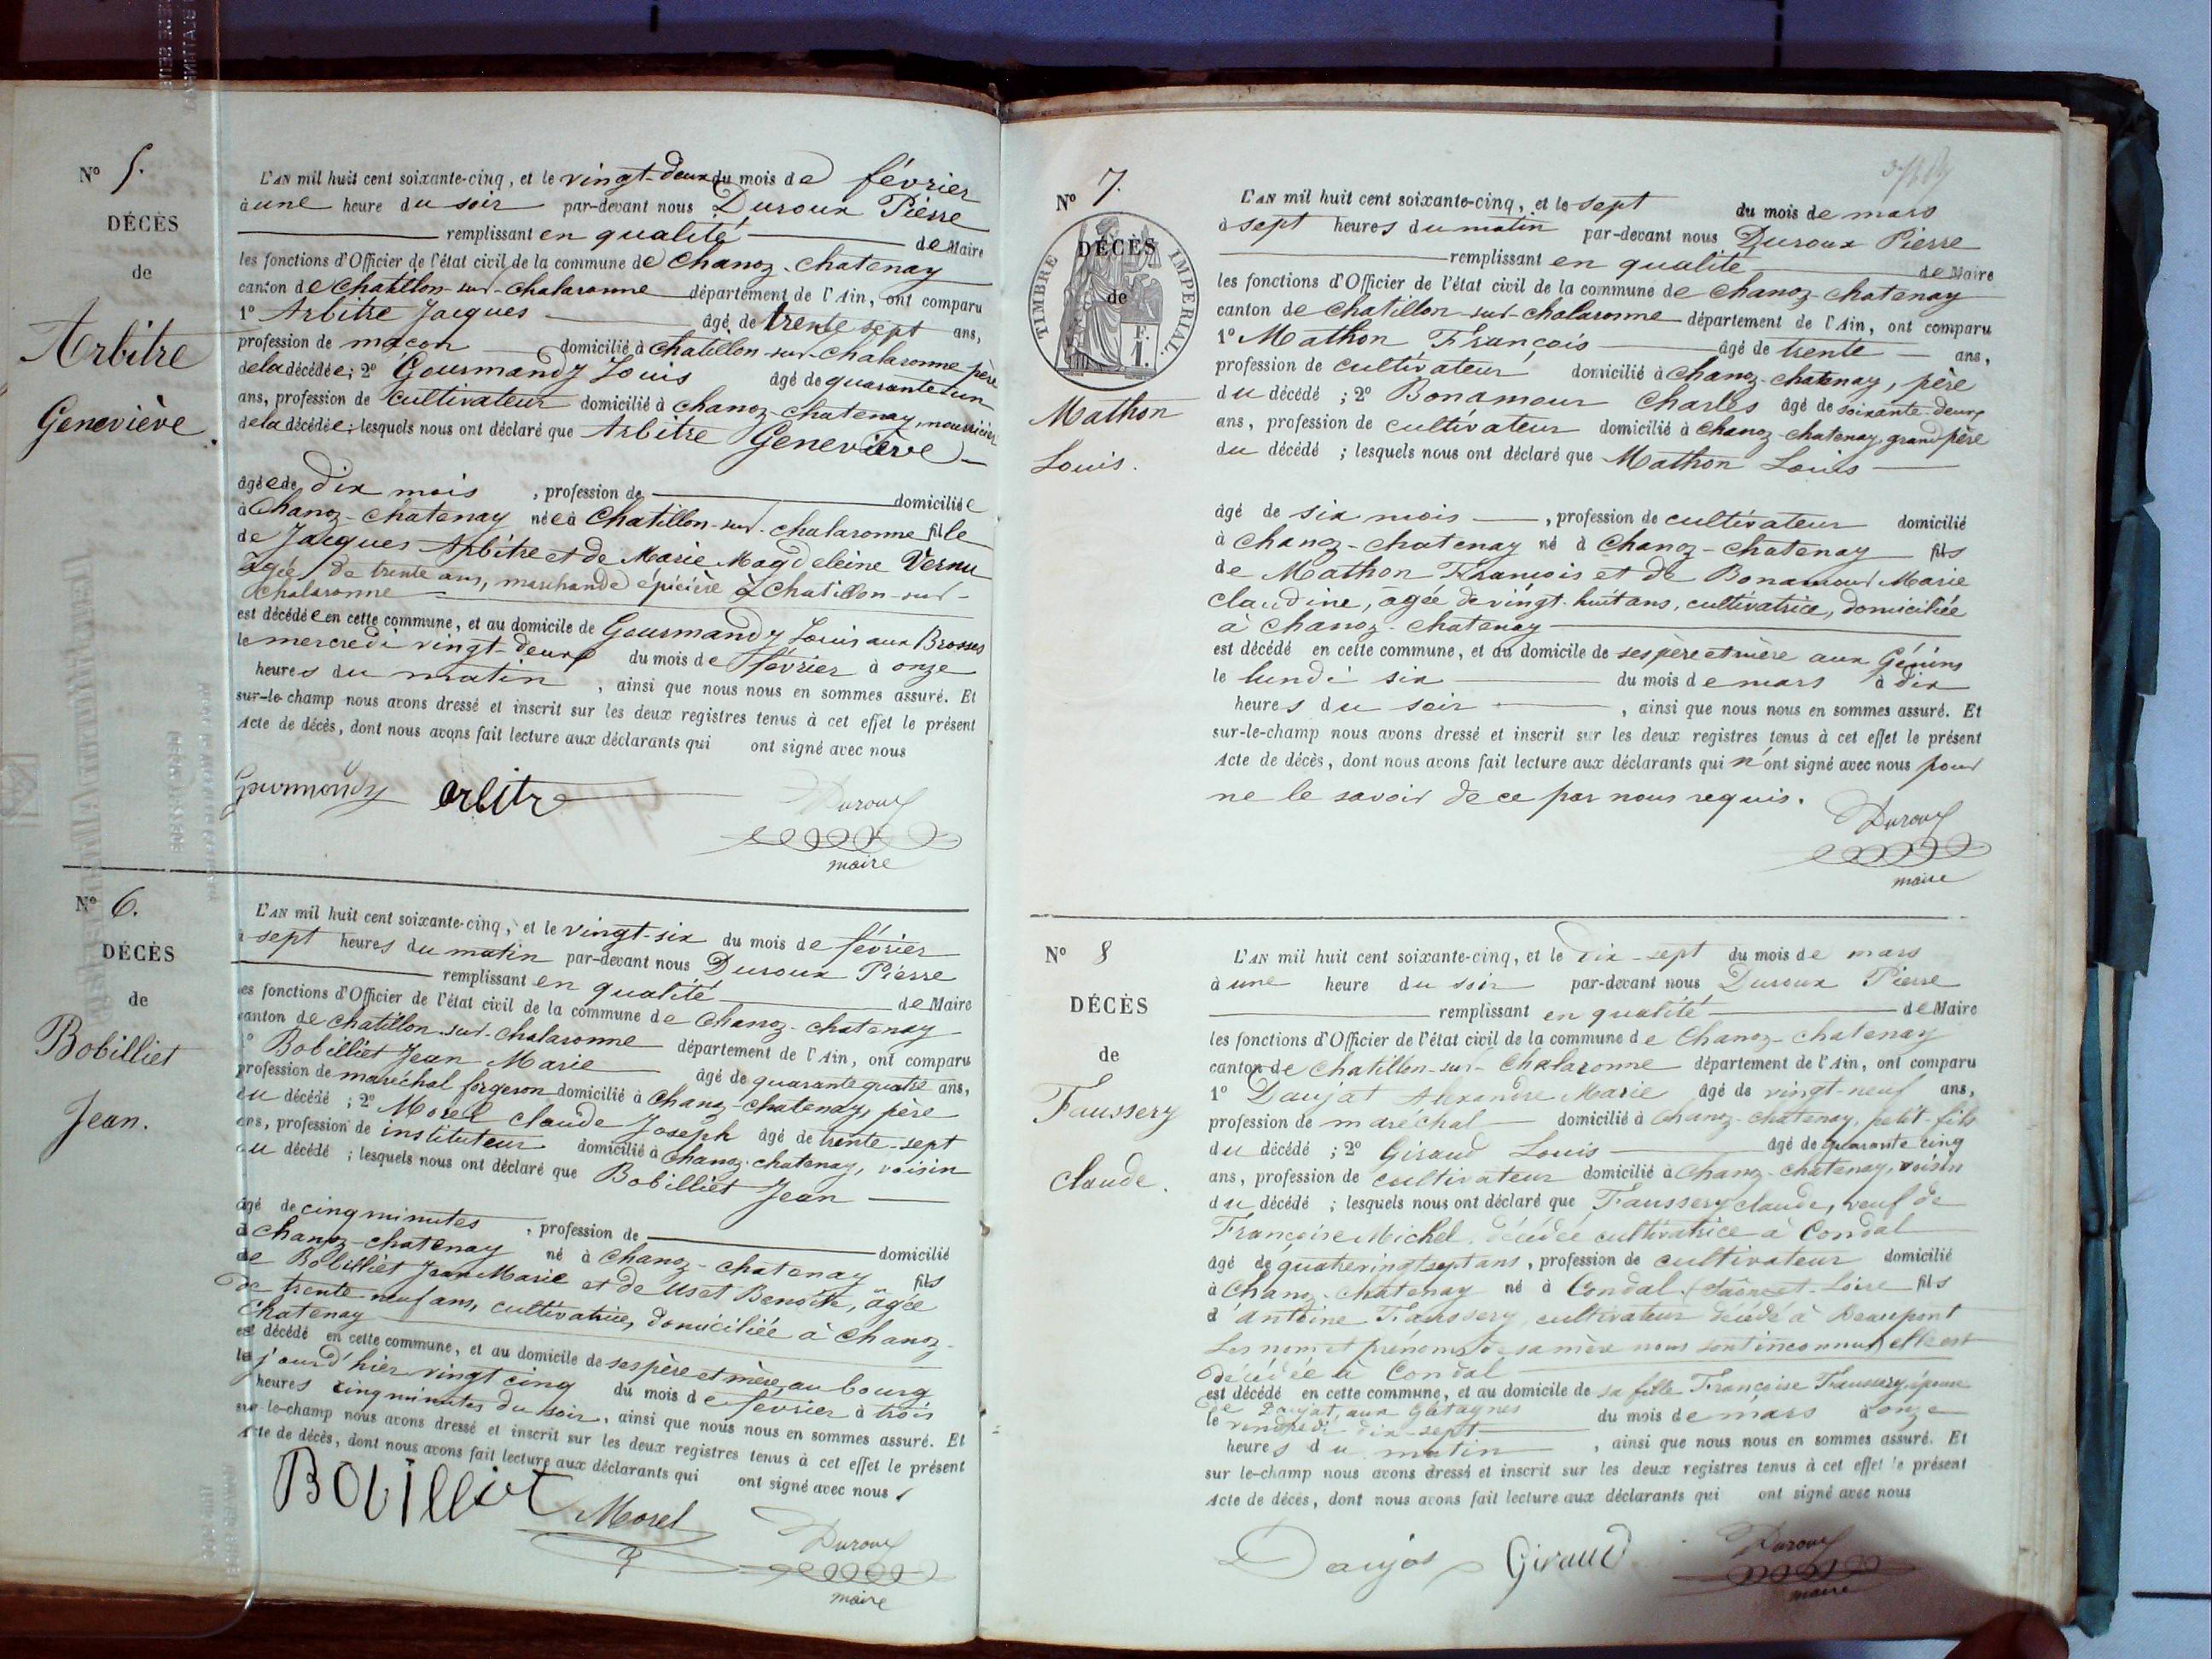 N° 5.
DÉCÈS
de
Arbitre
Geneviève.
L'AN mil huit cent soixante-cinq, et le vingt-deux du mois de février
à une heure du soir par-devant nous Duroux Pierre
remplissant en qualité de Maire
les fonctions d'Officier de l'état civil de la commune de Chanoz-Chatenay
canton de Chatillon-sur-Chalaronne département de l'Ain, ont comparu
1° Arbitre Jacques âgé de trente sept ans,
profession de maçon domicilié à Chatillon-sur-Chalaronne père
de la décédée; 2° Gourmandy Louis âgé de quarante un
ans, profession de cultivateur domicilié à Chanoz-Chatenay, nourricier
de la décédée; lesquels nous ont déclaré que Arbitre Geneviève
âgée de dix mois, profession de domiciliée
à Chanoz-Chatenay née à Chatillon-sur-Chalaronne fille
de Jacques Arbitre et de Marie Magdeleine Vernu
âgée de trente ans, marchande épicière à Chatillon-sur-
Chalaronne
est décédée en cette commune, et au domicile de Gourmandy Louis aux Brosses
le mercredi vingt-deux du mois de février à onze
heures du matin, ainsi que nous nous en sommes assuré. Et
sur-le-champ nous avons dressé et inscrit sur les deux registres tenus à cet effet le présent
Acte de décès, dont nous avons fait lecture aux déclarants qui ont signé avec nous
Gourmandy arbitre
Duroux
maire
N° 6.
DÉCÈS
de
Bobilliet
Jean.
L'AN mil huit cent soixante-cinq, et le vingt-six du mois de février
à sept heures du matin par-devant nous Duroux Pierre
remplissant en qualité de Maire
les fonctions d'Officier de l'état civil de la commune de Chanoz-Chatenay
canton de Chatillon-sur-Chalaronne département de l'Ain, ont comparu
1° Bobilliet Jean Marie âgé de quarante quatre ans,
profession de maréchal forgeron domicilié à Chanoz-Chatenay, père
du décédé; 2° Morel Claude Joseph âgé de trente-sept
ans, profession de instituteur domicilié à Chanoz-Chatenay, voisin
du décédé; lesquels nous ont déclaré que Bobilliet Jean
âgé de cinq minutes, profession de domicilié
à Chanoz-Chatenay né à Chanoz-Chatenay fils
de Bobilliet Jean Marie et de Uset Benoîte, âgée
de trente neuf ans, cultivatrice, domiciliée à Chanoz-
Chatenay
est décédé en cette commune, et au domicile de ses père et mère, au bourg
le jourd'hier vingt cinq du mois de février à trois
heures cinq minutes du soir, ainsi que nous nous en sommes assuré. Et
sur-le-champ nous avons dressé et inscrit sur les deux registres tenus à cet effet le présent
Acte de décès, dont nous avons fait lecture aux déclarants qui ont signé avec nous.
Bobilliet Morel
Duroux
maire
N° 7.
TIMBRE IMPERIAL
F.
1.
DÉCÈS
de
Mathon
Louis.
L'AN mil huit cent soixante-cinq, et le sept du mois de mars
à sept heures du matin par-devant nous Duroux Pierre
remplissant en qualité de Maire
les fonctions d'Officier de l'état civil de la commune de Chanoz-Chatenay
canton de Chatillon-sur-Chalaronne département de l'Ain, ont comparu
1° Mathon François âgé de trente ans,
profession de cultivateur domicilié à Chanoz-Chatenay, père
du décédé; 2° Bonamour Charles âgé de soixante-deux
ans, profession de cultivateur domicilié à Chanoz-Chatenay grand père
du décédé; lesquels nous ont déclaré que Mathon Louis
âgé de six mois, profession de cultivateur domicilié
à Chanoz-Chatenay né à Chanoz-Chatenay fils
de Mathon François et de Bonamour Marie
Claudine, âgée de vingt-huit ans, cultivatrice, domiciliée
à Chanoz-Chatenay
est décédé en cette commune, et au domicile de ses père et mère aux Génins
le lundi six du mois de mars à dix
heures du soir, ainsi que nous nous en sommes assuré. Et
sur-le-champ nous avons dressé et inscrit sur les deux registres tenus à cet effet le présent
Acte de décès, dont nous avons fait lecture aux déclarants qui n'ont signé avec nous pour
ne le savoir de ce par nous requis.
Duroux
maire
N° 8
DÉCÈS
de
Faussery
Claude.
L'AN mil huit cent soixante-cinq, et le dix-sept du mois de mars
à une heure du soir par-devant nous Duroux Pierre
remplissant en qualité de Maire
les fonctions d'Officier de l'état civil de la commune de Chanoz-Chatenay
canton de Chatillon-sur-Chalaronne département de l'Ain, ont comparu
1° Daujat Alexandre Marie âgé de vingt-neuf ans,
profession de maréchal domicilié à Chanoz-Chatenay, petit-fils
du décédé; 2° Giraud Louis âgé de quarante cinq
ans, profession de cultivateur domicilié à Chanoz-Chatenay, voisin
du décédé; lesquels nous ont déclaré que Faussery Claude, veuf de
Françoise Michel, décédée cultivatrice à Condal
âgé de quatre vingt sept ans, profession de cultivateur domicilié
à Chanoz-Chatenay né à Condal (Saône et Loire fils
d'Antoine Faussery, cultivateur décédé à Beaupont
Les nom et prénoms de sa mère nous sont inconnus, elle est
décédée à Condal
est décédé en cette commune, et au domicile de sa fille Françoise Faussery, épouse
de Daujat, aux
le vendredi dix-sept du mois de mars à onze
heures du matin, ainsi que nous nous en sommes assuré. Et
sur le-champ nous avons dressé et inscrit sur les deux registres tenus à cet effet le présent
Acte de décès, dont nous avons fait lecture aux déclarants qui ont signé avec nous
Daujat Giraud
Duroux
maire